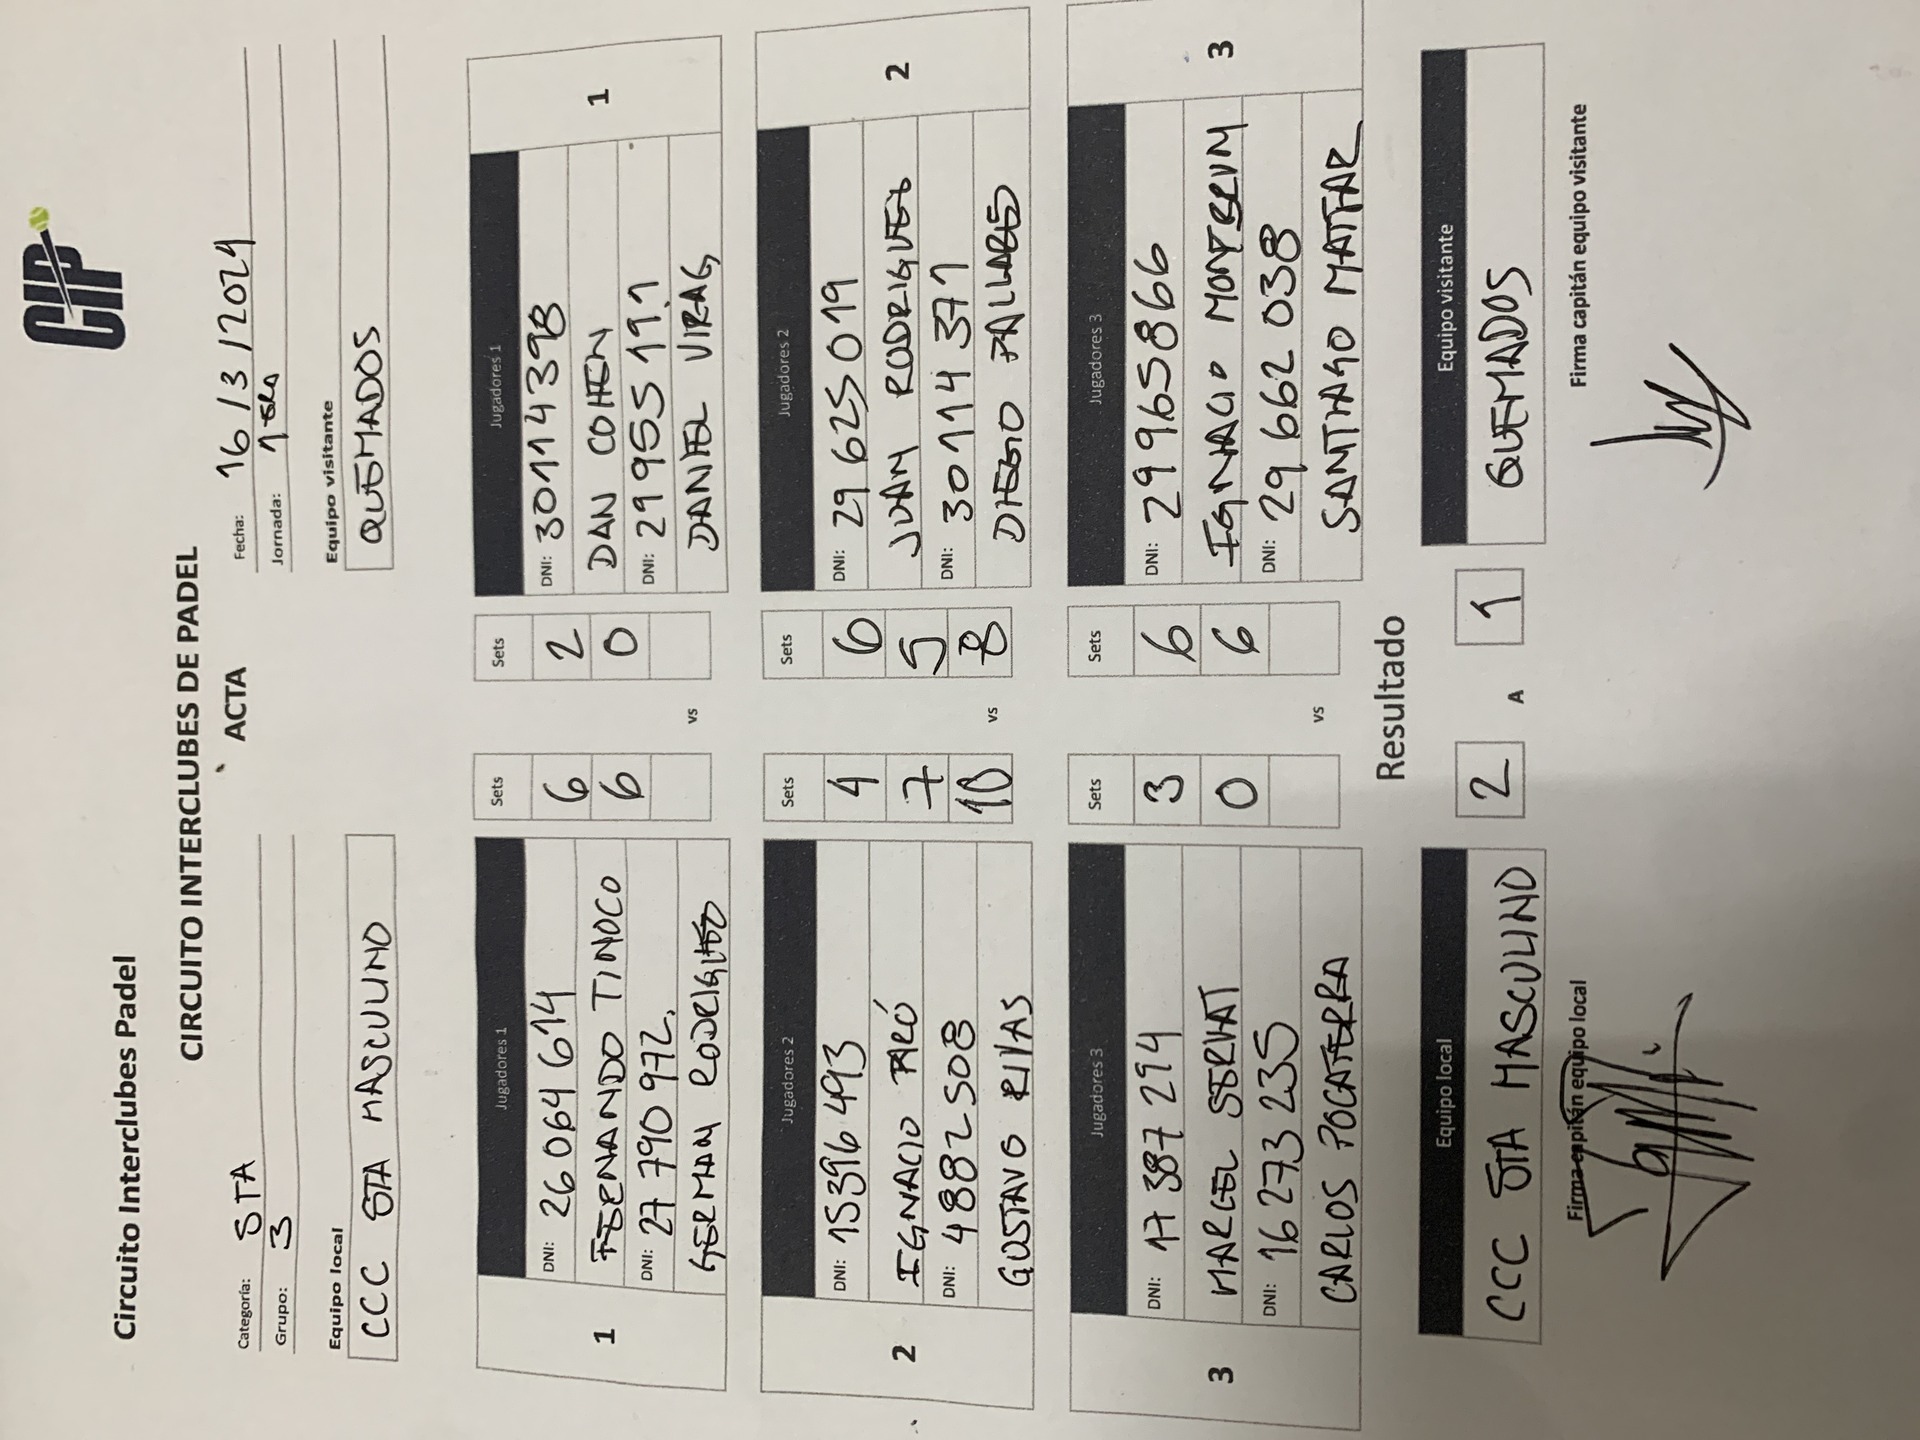 CIP
Circuito Interclubes Padel
CIRCUITO INTERCLUBES DE PADEL
ACTA
Categoría: 5TA
Grupo: 3
Fecha: 16/3/2024
Jornada: 1era
Equipo local
CCC 5TA MASCULINO
Equipo visitante
QUEMADOS
Jugadores 1 Sets Sets Jugadores 1
1 DNI: 26064614 6 2 DNI: 30114398 1
FERNANDO TINOCO 6 0 DAN COHEN
DNI: 27790972. DNI: 29955191
GERMAN RODRIGUEZ vs DANIEL VIRAG
Jugadores 2 Sets Sets Jugadores 2
2 DNI: 15396493 4 6 DNI: 29625019 2
IGNACIO 7 5 JUAN RODRIGUEZ
DNI: 4882508 10 8 DNI: 30114371
GUSTAVO RIVAS vs DIEGO PALLARES
Jugadores 3 Sets Sets Jugadores 3
3 DNI: 17387294 3 6 DNI: 29965866 3
MARCEL SERVAT 0 6 IGNACIO MONTBRUM
DNI: 16273235 DNI: 29662038
CARLOS POCATERRA vs SANTIAGO MATTAR
Resultado
Equipo local Equipo visitante
CCC 5TA MASCULINO 2 A 1 QUEMADOS
Firma capitán equipo local Firma capitán equipo visitante